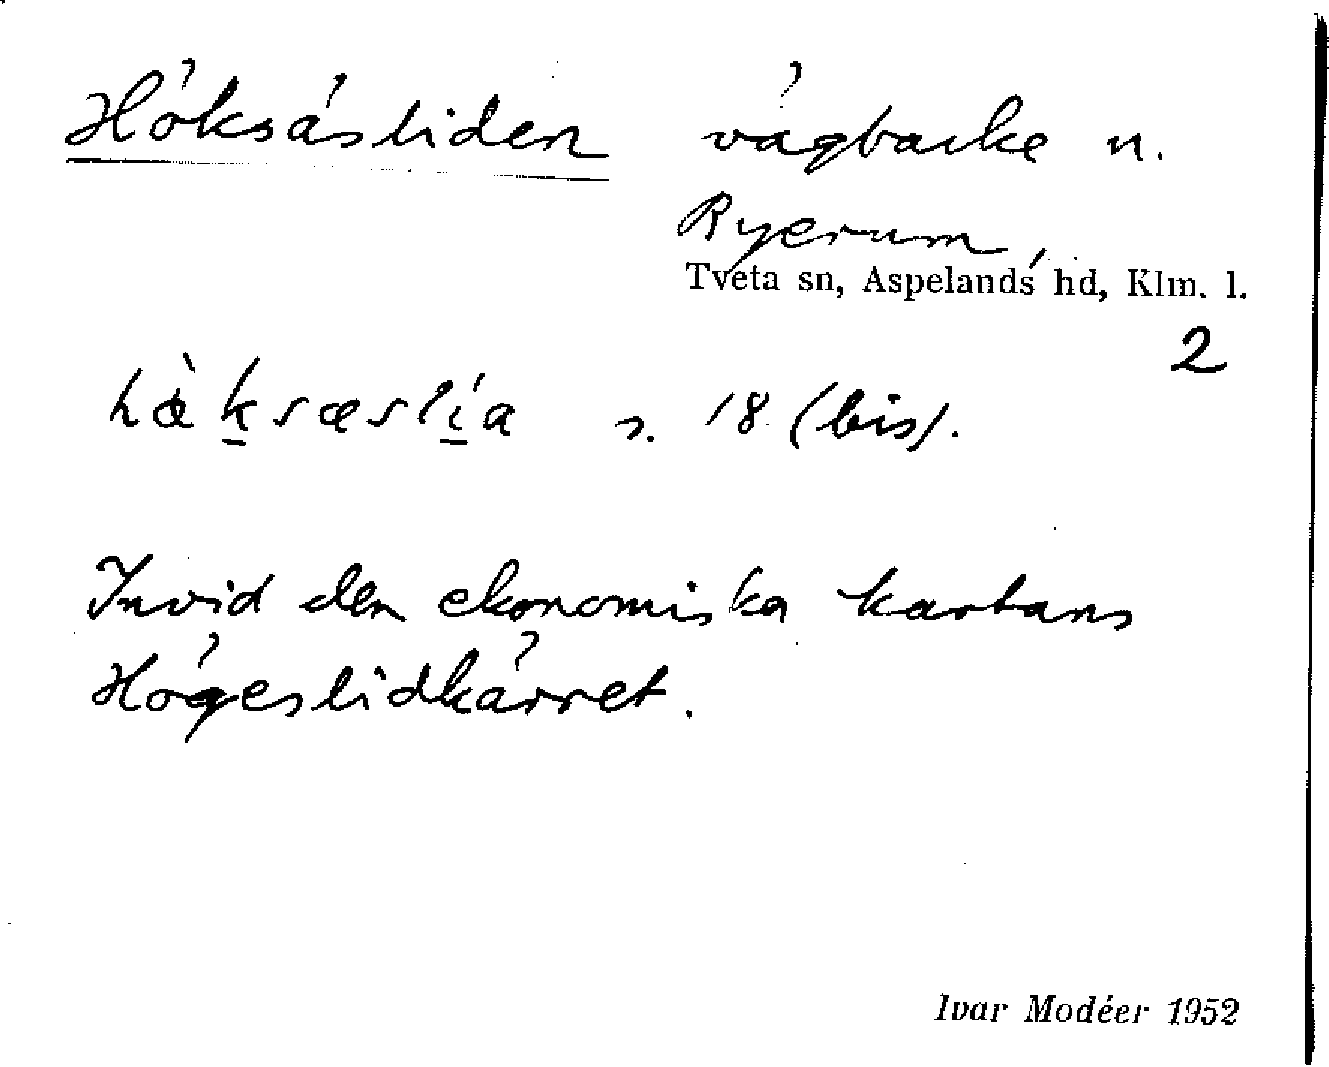 Höksåsliden vägbacke n.
Ryerum,
Tveta sn, Aspelands hd, Klm. l.
2
hæ̀k̲sæslí̲a s. 18 (bis).
Invid den ekonomiska kartans
Högeslidkärret.
Ivar Modéer 1952